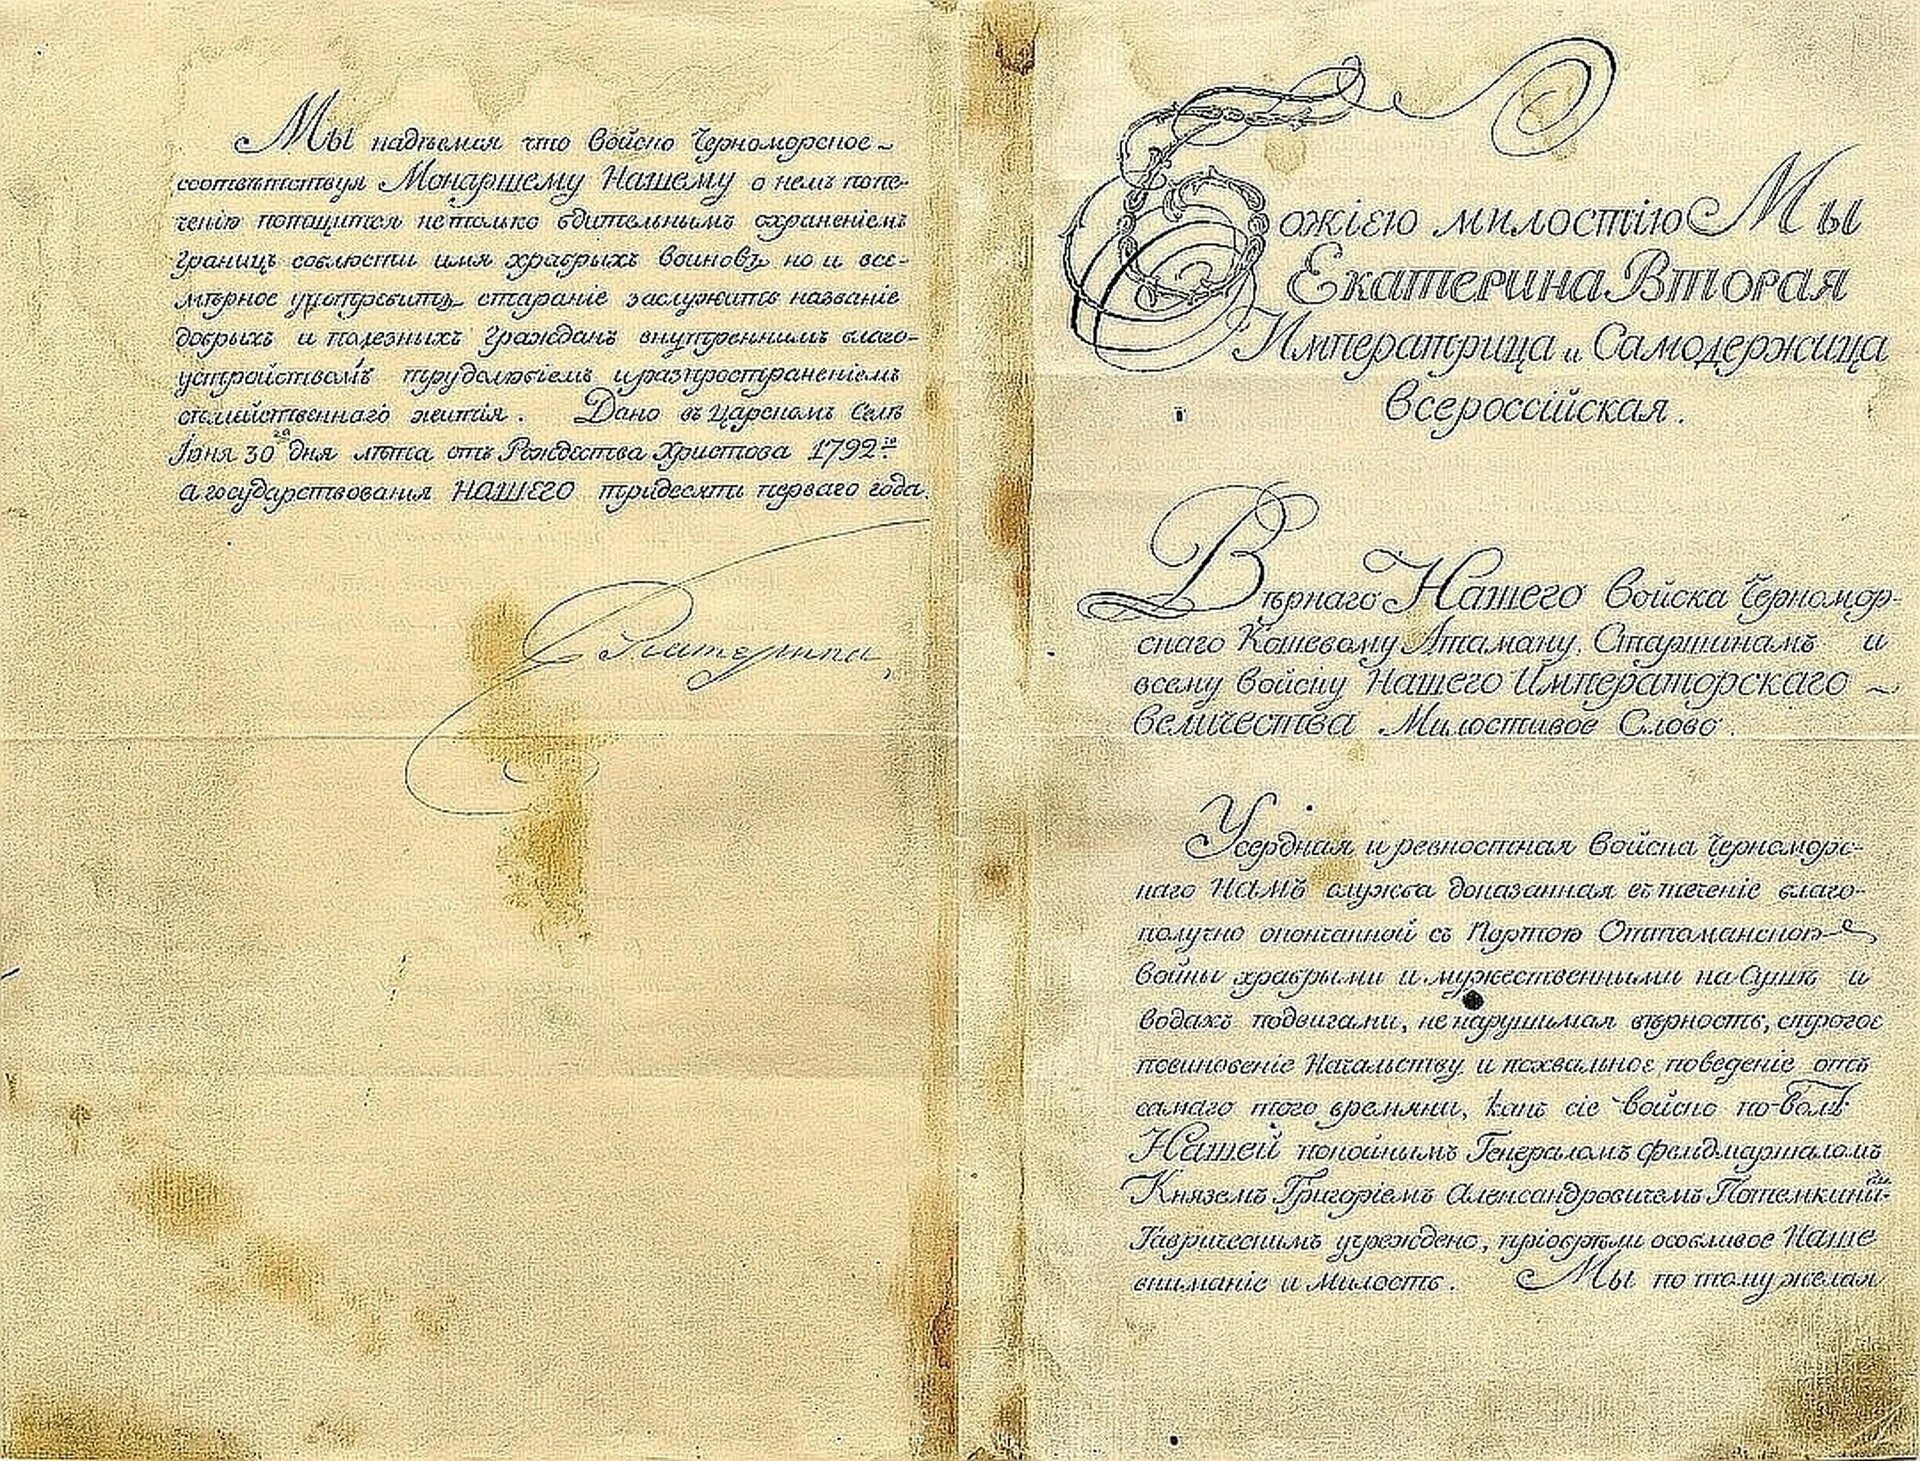 Божіею милостію Мы
Екатерина Вторая
Императрица и Самодержица
Всероссійская.
Вѣрнаго Нашего Войска Черномор-
скаго Кошевому Атаману, Старшинамъ и
всему Войску Нашего Императорскаго
величества Милостивое Слово.
Усердная и ревностная Войска Черноморс-
каго Намъ служба доказанная въ теченіе благо-
получно оконченной съ Портою Оттоманскою
войны храбрыми и мужественными на Сушѣ и
водахъ подвигами, ненарушимая вѣрность, строгое
повиновеніе Начальству и похвальное поведеніе отъ
самаго того времяни, какъ сіе войско по Волѣ
Нашей покойнымъ Генераломъ Фельдмаршаломъ
Княземъ Григоріемъ Александровичемъ Потемкинымъ
Таврическимъ учреждено, пріобрѣли особливое Наше
вниманіе и Милость. Мы по тому желая
Мы надѣемся что Войско Черноморское
соотвѣтствуя Монаршему Нашему о немъ попе-
ченію потщится не только бдительнымъ охраненіемъ
границъ соблюсти имя храбрыхъ воиновъ но и все-
мѣрное употребитъ стараніе заслужить названіе
добрыхъ и полезныхъ Гражданъ внутреннимъ благо-
устройствомъ трудолюбіемъ и распространеніемъ
семейственнаго житія. Дано въ Царскомъ Селѣ
Іюня 30го дня лѣта отъ Рождества Христова 1792го
а государствованія НАШЕГО тридесять перваго года.
Екатерина